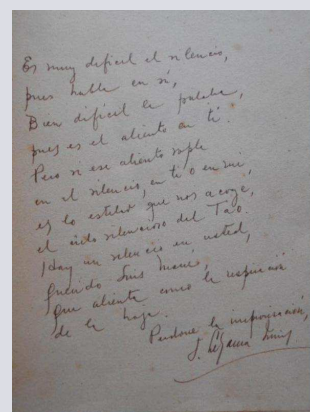 Es muy difícil el silencio,
pues habla en sí,
Bien difícil la palabra,
pues es el aliento en ti.
Pero si ese aliento sople
en el silencio, en ti o en mi,
es lo estelar que nos acoge,
el oído silencioso del Tao.
Hay un silencio en usted,
querido Luis
que alienta como la respiración
de la hoja.
Perdone la improvisación,
J. Lezama Lima